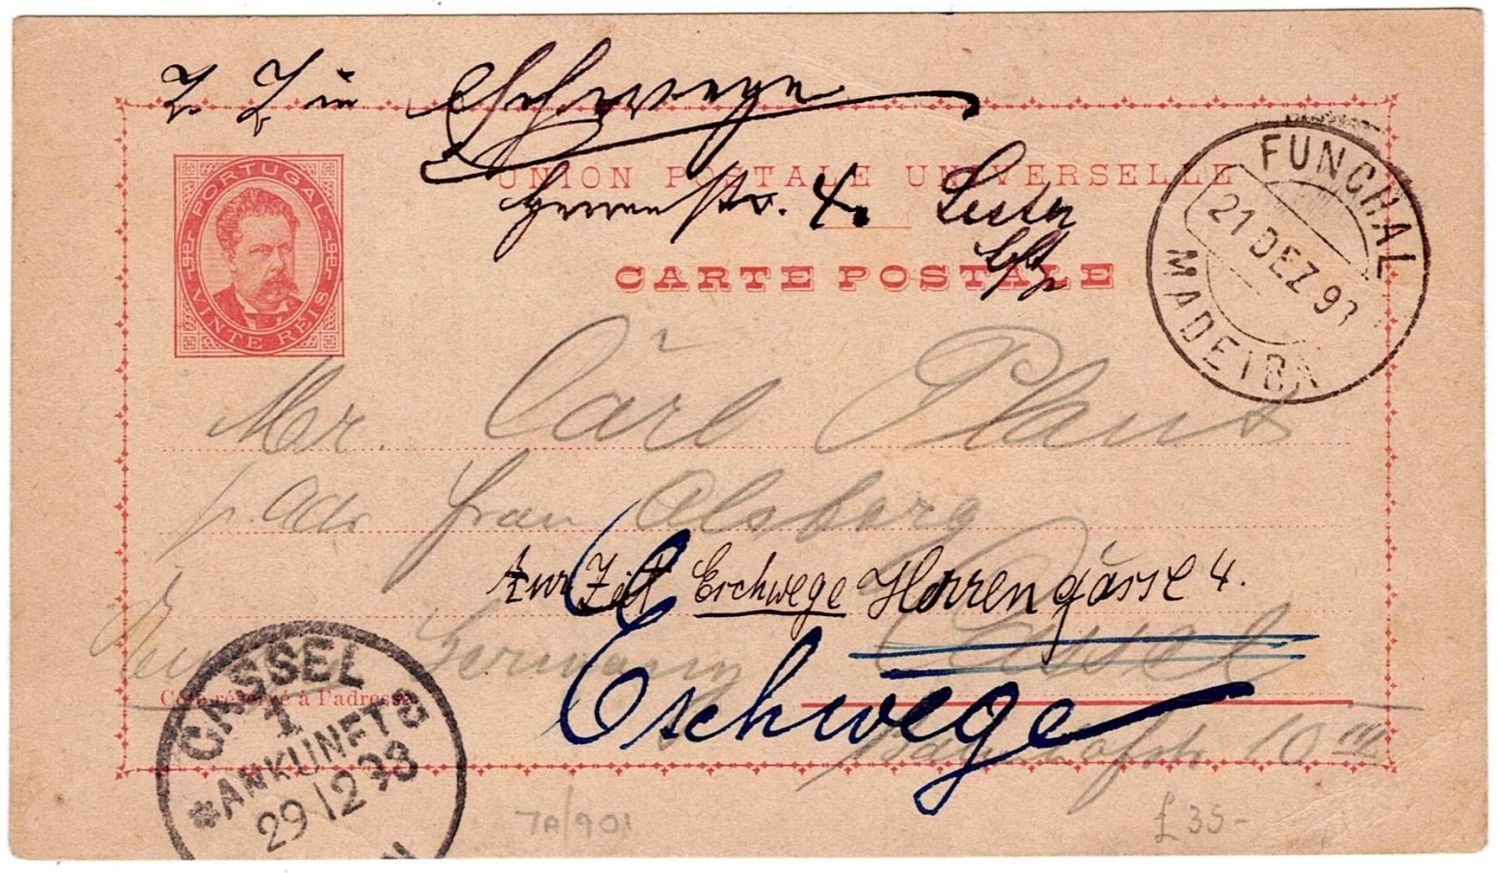 z. Z. in Eschwege
UNION POSTALE UNIVERSELLE
Herrenstr. 4.
CARTE POSTALE
PORTUGAL
VINTE RÉIS
FUNCHAL
21 DEZ 93
MADEIRA
Mr. Carl Plaut
p. Adr. Frau Alsberg
zur Zeit Eschwege Herrengasse 4.
Germany Cassel
Côté réservé à l'adresse
Eschwege
Bahnhofstr. 10 III
CASSEL
1
ANKUNFT
29 12 93
7A/901
£35-